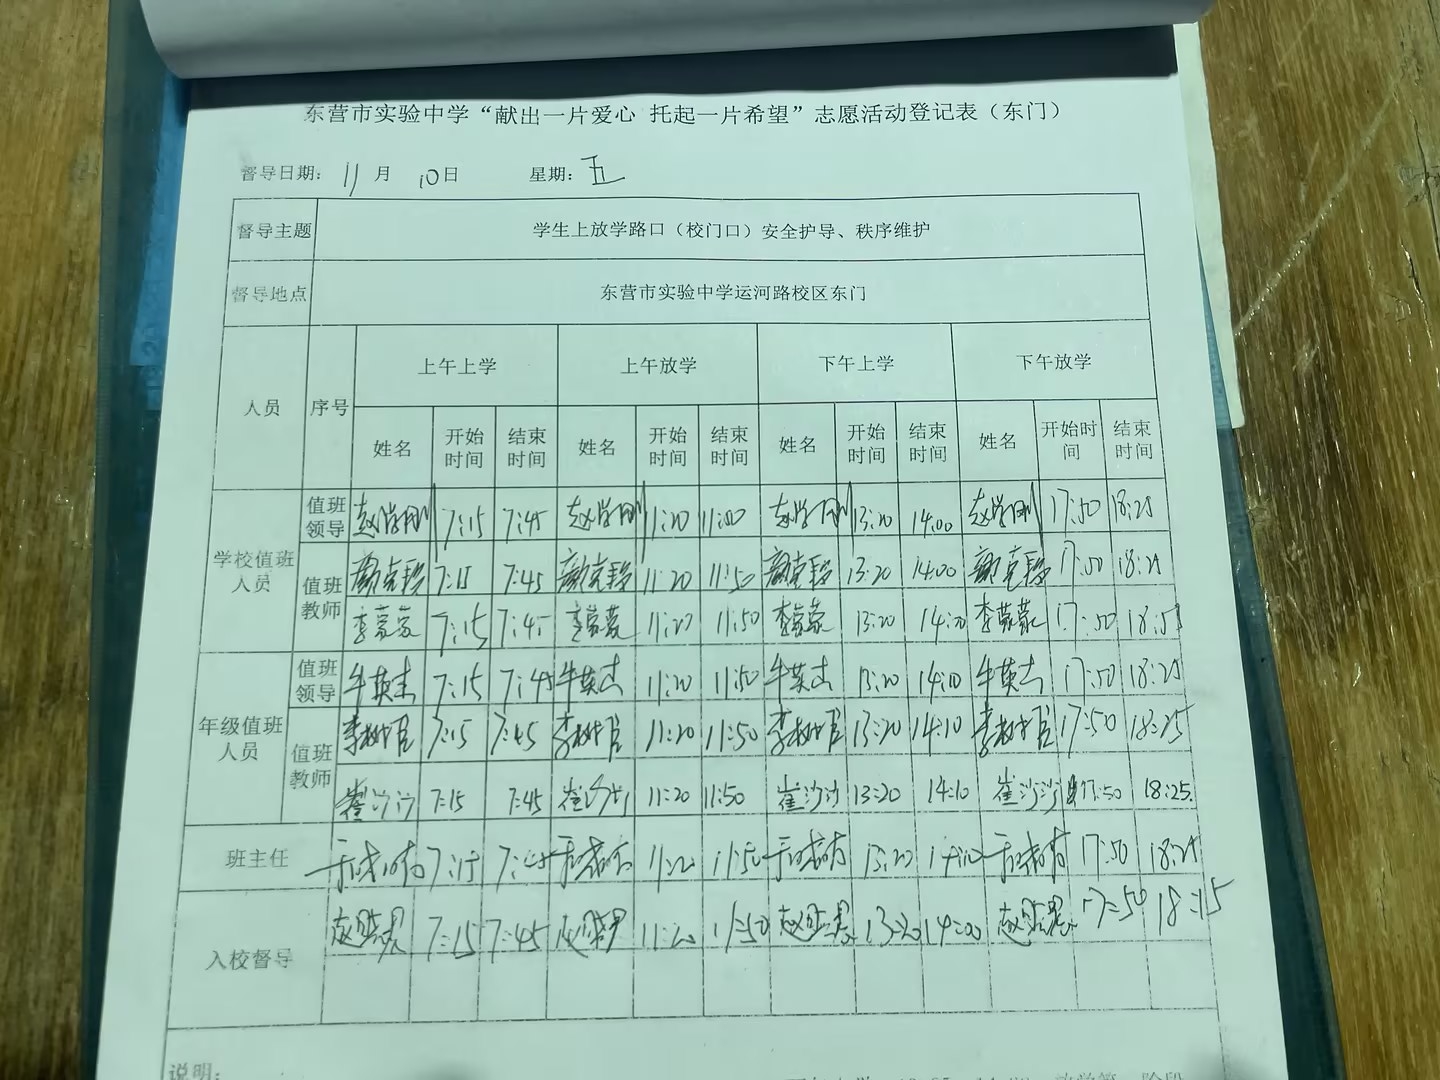 东营市实验中学“献出一片爱心 托起一片希望”志愿活动登记表（东门）
督导日期： 11 月 10 日 星期： 五
督导主题 学生上放学路口（校门口）安全护导、秩序维护
督导地点 东营市实验中学运河路校区东门
人员 序号 上午上学 上午放学 下午上学 下午放学
姓名 开始时间 结束时间 姓名 开始时间 结束时间 姓名 开始时间 结束时间 姓名 开始时间 结束时间
学校值班人员 值班领导 赵学刚 7:15 7:45 赵学刚 11:20 赵学刚 13:20 14:00 赵学刚 17:50 18:25
值班教师 7:15 7:45 11:20 11:50 13:20 14:00 17:50 18:25
李蒙蒙 7:15 7:45 李蒙蒙 11:20 11:50 李蒙蒙 13:20 李蒙蒙 17:50
年级值班人员 值班领导 牛英杰 7:15 7:45 牛英杰 11:20 11:50 牛英杰 13:20 14:10 牛英杰 17:50 18:25
值班教师 7:15 7:45 11:20 11:50 13:20 14:10 17:50 18:25
崔沙沙 7:15 7:45 崔沙沙 11:20 11:50 崔沙沙 13:20 14:10 崔沙沙 17:50 18:25
班主任 7:15 7:45 11:20 11:50 13:20 14:10 17:50 18:25
入校督导 7:15 7:45 11:20 11:50 13:20 14:00 17:50 18:15
说明：